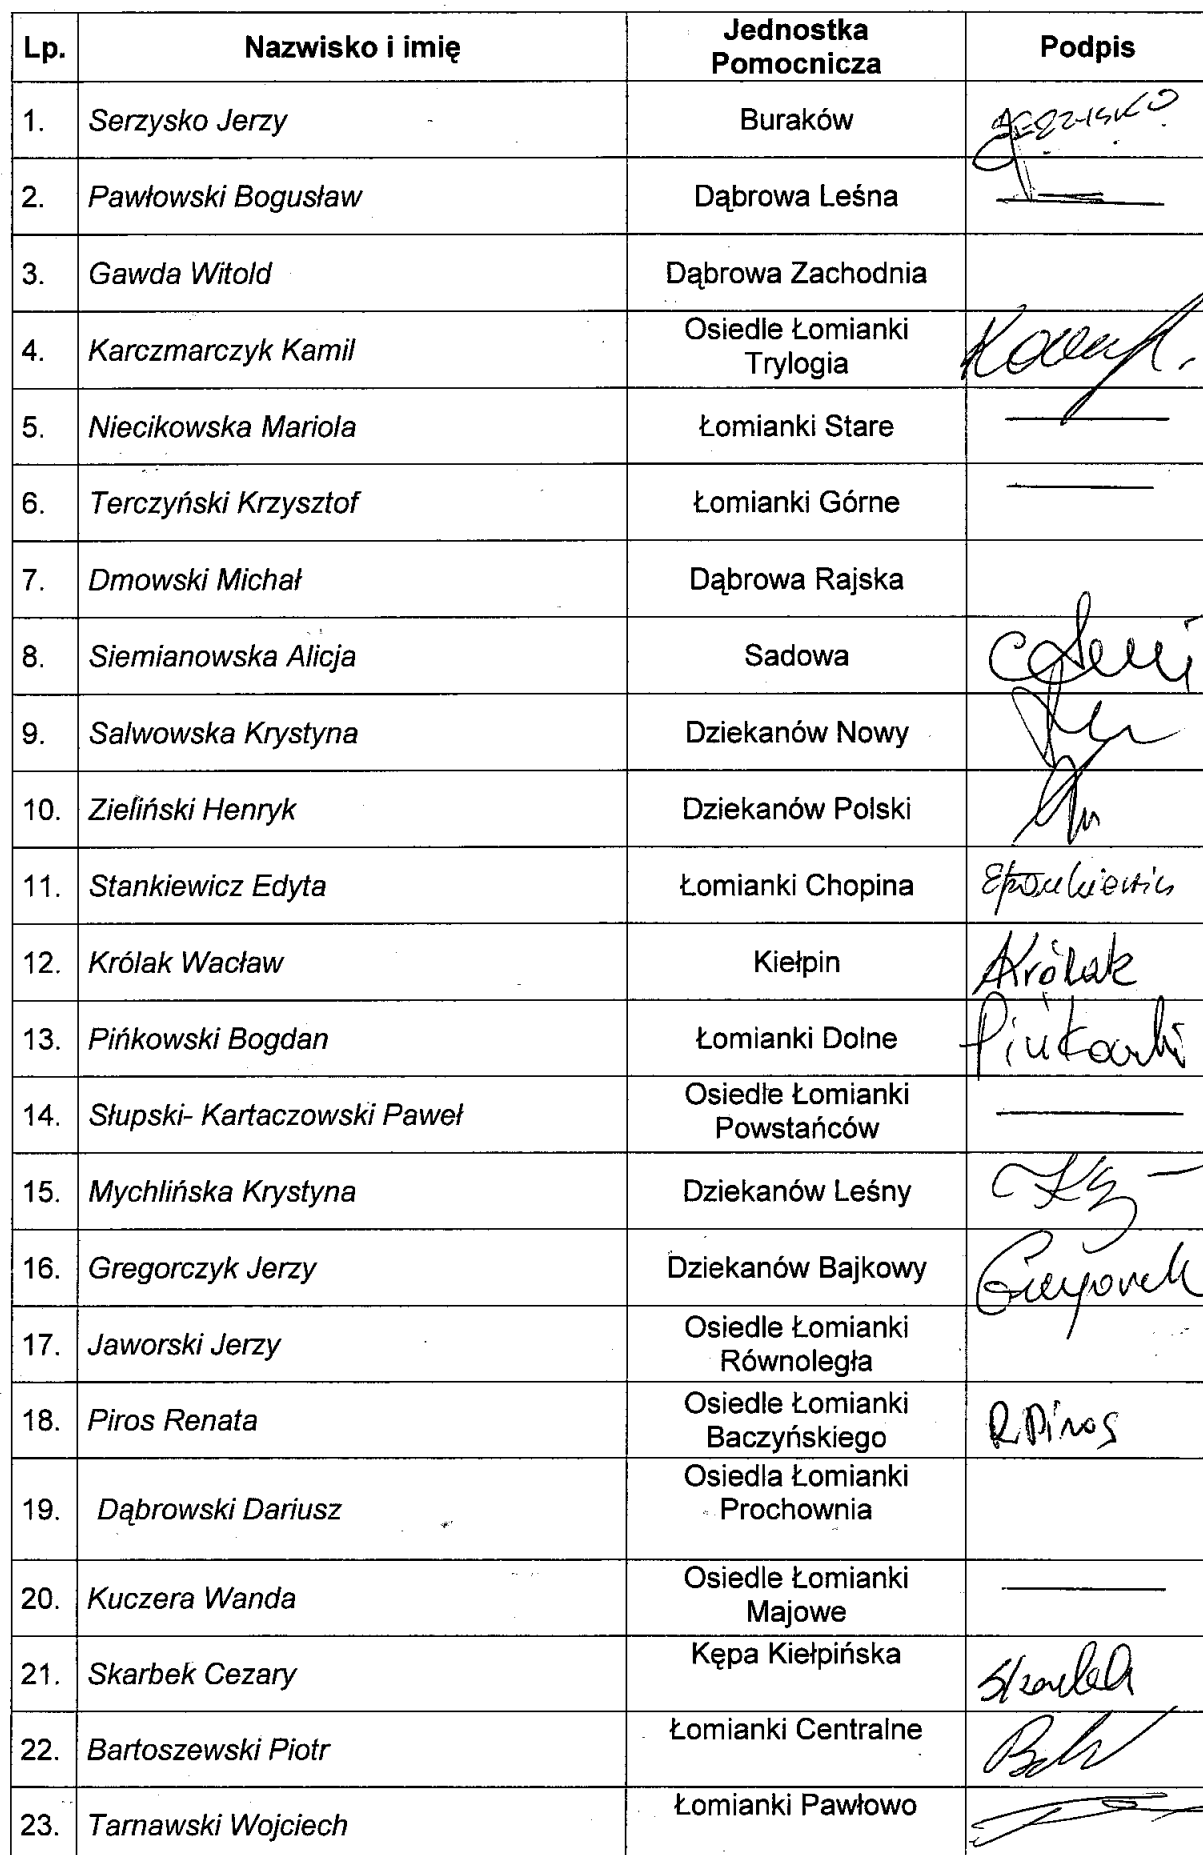 Lp. Nazwisko i imię Jednostka Pomocnicza Podpis
1. Serzysko Jerzy Buraków
2. Pawłowski Bogusław Dąbrowa Leśna
3. Gawda Witold Dąbrowa Zachodnia
4. Karczmarczyk Kamil Osiedle Łomianki Trylogia
5. Niecikowska Mariola Łomianki Stare
6. Terczyński Krzysztof Łomianki Górne
7. Dmowski Michał Dąbrowa Rajska
8. Siemianowska Alicja Sadowa
9. Salwowska Krystyna Dziekanów Nowy
10. Zieliński Henryk Dziekanów Polski
11. Stankiewicz Edyta Łomianki Chopina EStankiewicz
12. Królak Wacław Kiełpin Królak
13. Pińkowski Bogdan Łomianki Dolne Pińkowski
14. Słupski- Kartaczowski Paweł Osiedle Łomianki Powstańców
15. Mychlińska Krystyna Dziekanów Leśny
16. Gregorczyk Jerzy Dziekanów Bajkowy
17. Jaworski Jerzy Osiedle Łomianki Równoległa
18. Piros Renata Osiedle Łomianki Baczyńskiego R. Piros
19. Dąbrowski Dariusz Osiedla Łomianki Prochownia
20. Kuczera Wanda Osiedle Łomianki Majowe
21. Skarbek Cezary Kępa Kiełpińska Skarbek
22. Bartoszewski Piotr Łomianki Centralne
23. Tarnawski Wojciech Łomianki Pawłowo